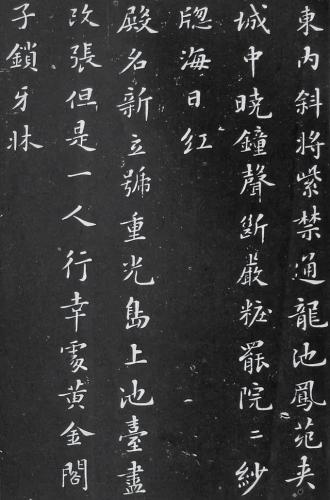 東内斜将紫禁通龍池鳳苑夹
城中晓鐘聲断嚴粧罷院〻紗
牕海日红
殿名新立號重光島上池臺盡
改張但是一人行幸處黄金閤
子鎖牙牀